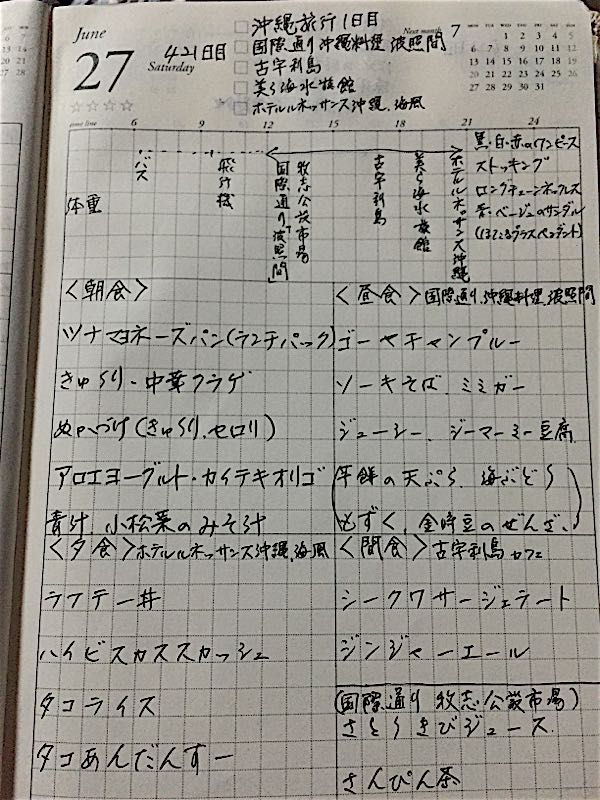 June
27
Saturday
421日目
沖縄旅行1日目
国際通り 沖縄料理 波照間
古宇利島
美ら海水族館
ホテルルネッサンス沖縄、海風
Next month 7
MON TUE WED THU FRI SAT SUN
1 2 3 4 5
6 7 8 9 10 11 12
13 14 15 16 17 18 19
20 21 22 23 24 25 26
27 28 29 30 31
☆☆☆☆
time line 6 9 12 15 18 21 24
体重
バス
飛行機
国際通り「波照間」
牧志公設市場
古宇利島
美ら海水族館
ホテルルネッサンス沖縄
黒・白・赤のワンピース
ストッキング
ロングチェーンネックレス
茶・ベージュのサンダル
(ほたるグラスペンダント)
〈朝食〉
ツナマヨネーズパン(ランチパック)
きゅうり・中華クラゲ
ぬか漬け(きゅうり、セロリ)
アロエヨーグルト・カイテキオリゴ
青汁、小松菜のみそ汁
〈昼食〉国際通り、沖縄料理、波照間
ゴーヤチャンプルー
ソーキそば、ミミガー
ジューシー、ジーマーミー豆腐
(芋鮮の天ぷら、海ぶどう
もずく、金時豆のぜんざい)
〈夕食〉ホテルルネッサンス沖縄、海風
ラフテー丼
ハイビスカススカッシュ
タコライス
タコあんだんすー
〈間食〉古宇利島カフェ
シークワサージェラート
ジンジャーエール
(国際通り 牧志公設市場)
さとうきびジュース
さんぴん茶